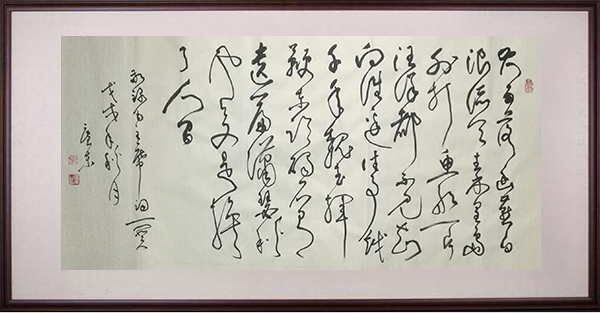 大雨落幽燕白
浪滔天秦皇岛
外打鱼船一片
汪洋都不见知
向谁边往事越
千年魏武挥
鞭东临碣石有
遗篇萧瑟秋
风今又是换
了人间
毛主席词一
戊戌年秋月